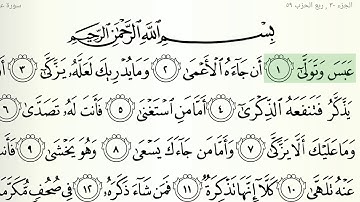 الجزء ٣٠ , ربع الحزب ٥٩
بِسْمِ ٱللَّهِ ٱلرَّحْمَٰنِ ٱلرَّحِيمِ
عَبَسَ وَتَوَلَّىٰٓ ١ أَن جَآءَهُ ٱلْأَعْمَىٰ ٢ وَمَا يُدْرِيكَ لَعَلَّهُۥ يَزَّكَّىٰٓ ٣ أَوْ
يَذَّكَّرُ فَتَنفَعَهُ ٱلذِّكْرَىٰٓ ٤ أَمَّا مَنِ ٱسْتَغْنَىٰ ٥ فَأَنتَ لَهُۥ تَصَدَّىٰ ٦
وَمَا عَلَيْكَ أَلَّا يَزَّكَّىٰ ٧ وَأَمَّا مَن جَآءَكَ يَسْعَىٰ ٨ وَهُوَ يَخْشَىٰ ٩
عَنْهُ تَلَهَّىٰ ١٠ كَلَّآ إِنَّهَا تَذْكِرَةٌ ١١ فَمَن شَآءَ ذَكَرَهُۥ ١٢ فِى صُحُفٍ